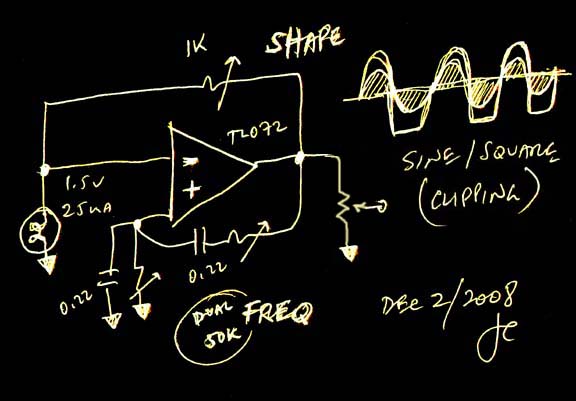 1K
SHAPE
TL072
-
+
1.5V
25mA
0.22
0.22
DUAL
50K
FREQ
SINE/SQUARE
(CLIPPING)
DEC 2/2008